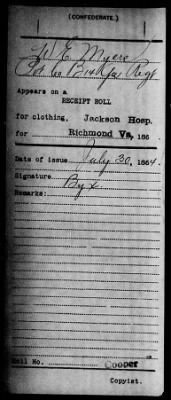 (CONFEDERATE.)
W E Myers
Appears on a
RECEIPT ROLL
for clothing, Jackson Hosp.
for Richmond Va, 186
Date of issue July 30, 1864.
Signature By x
Remarks:
Roll No.
Cooper
Copyist.